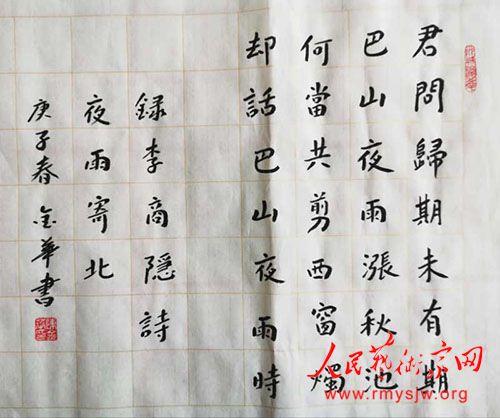 君問歸期未有期
巴山夜雨漲秋池
何當共剪西窗燭
却話巴山夜雨時
録李商隱詩
夜雨寄北
庚子春金華書
人民藝術家网
www.rmysjw.org